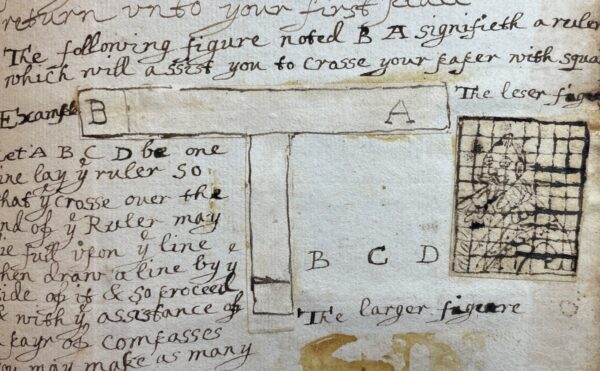 return unto your first
The following figure noted B A signifieth a ruler
which will assist you to Crosse your paper with squa
Example
B
A
The leser figure
Let A B C D be one
line lay ye ruler so
that ye Crosse over the
end of ye Ruler may
be full upon ye line
then draw a line by ye
side of it & so proceed
& with ye assistance of
payr of Compasses
you may make as many
B C D
The larger figure